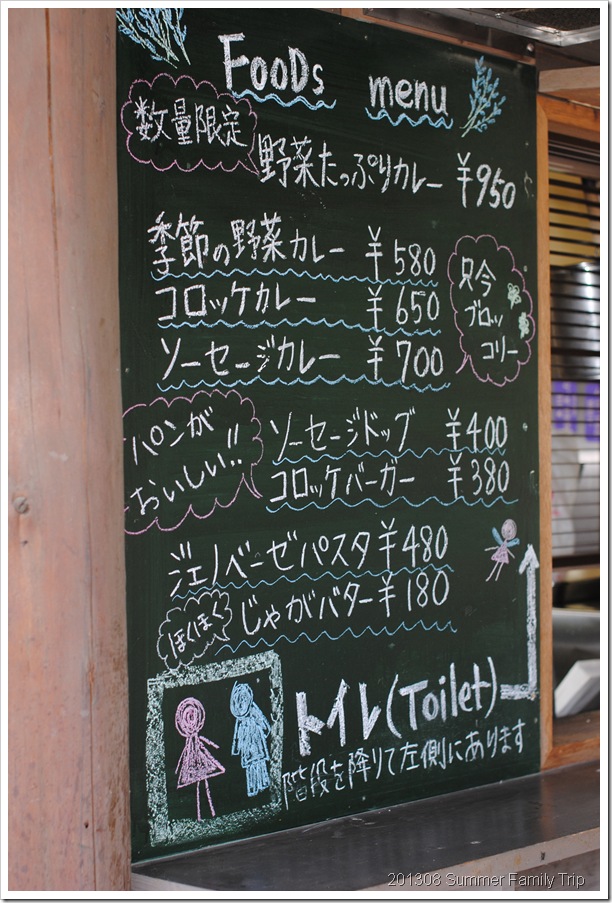 FooDs menu
数量限定
野菜たっぷりカレー ¥950
季節の野菜カレー ¥580
コロッケカレー ¥650
ソーセージカレー ¥700
只今
ブロッ
コリー
パンが
おいしい!!
ソーセージドッグ ¥400
コロッケバーガー ¥380
ジェノベーゼパスタ ¥480
ほくほく
じゃがバター ¥180
トイレ(Toilet)
階段を降りて左側にあります
201308 Summer Family Trip